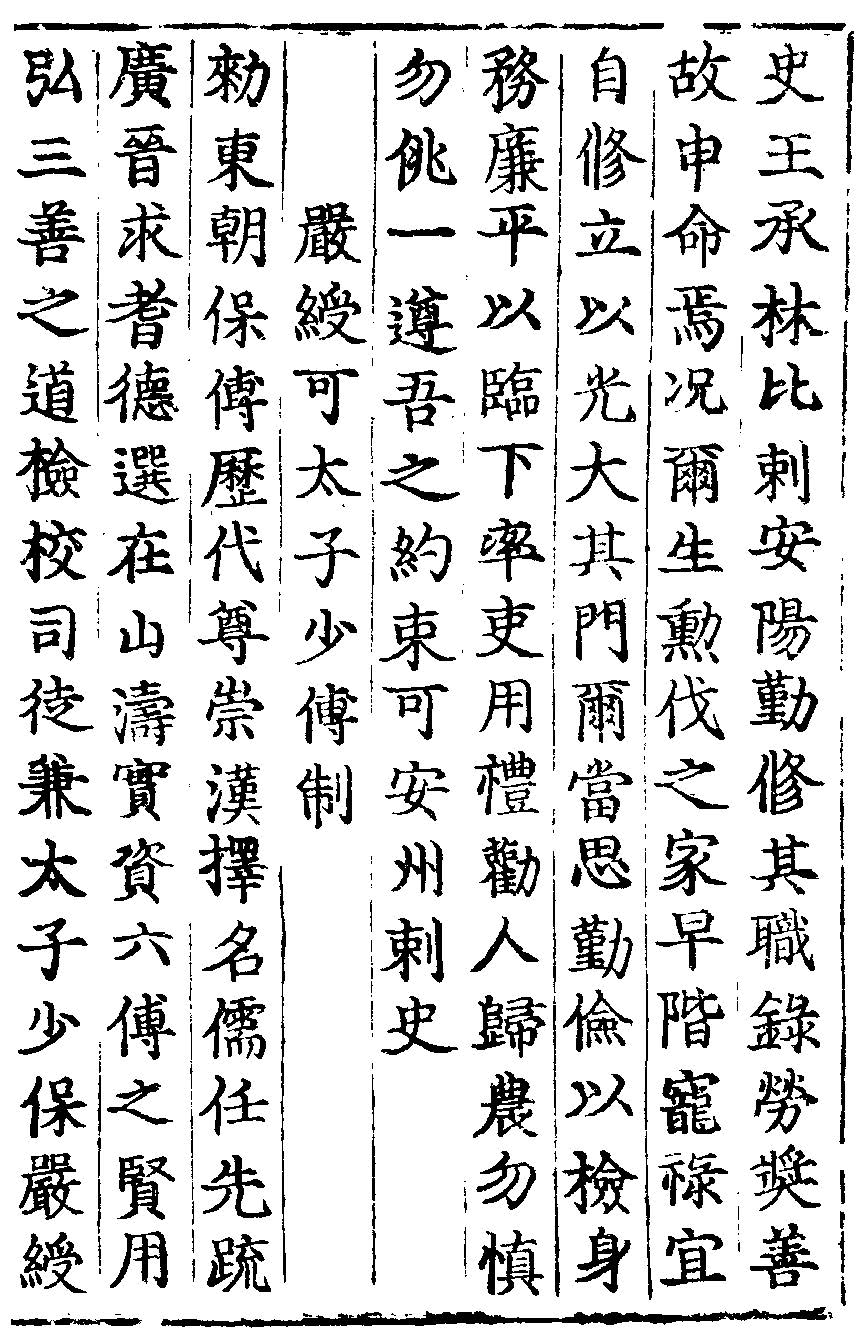 史王承林比刺安陽勤修其職錄勞奬善
故申命焉况爾生勲伐之家早階寵祿宜
自修立以光大其門爾當思勤儉以檢身
務廉平以臨下率吏用禮勸人歸農勿慎
勿佻一遵吾之約束可安州刺史
嚴綬可太子少傅制
勑東朝保傅歷代尊崇漢擇名儒任先䟽
廣晉求耆德選在山濤實資六傅之賢用
弘三善之道檢校司徒兼太子少保嚴綬